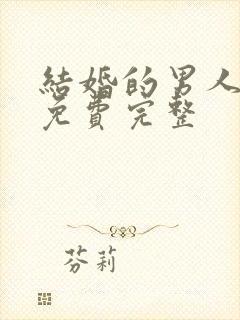 結婚的男人
免費完整
芬莉